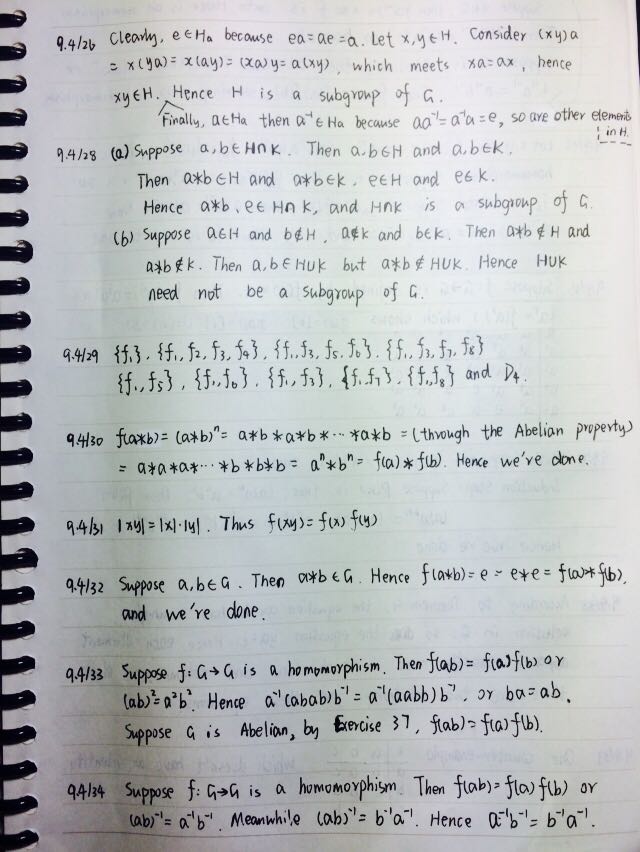 9.4/26 Clearly, e∈Ha because ea=ae=a. Let x,y∈H. Consider (xy)a
= x(ya)= x(ay)= (xa)y= a(xy), which meets xa=ax, hence
xy∈H. Hence H is a subgroup of G.
Finally, a∈Ha then a⁻¹∈Ha because aa⁻¹=a⁻¹a=e, so are other elements
in H.
9.4/28 (a) Suppose a,b∈H∩K. Then a,b∈H and a,b∈K.
Then a*b∈H and a*b∈K. e∈H and e∈K.
Hence a*b, e∈H∩K, and H∩K is a subgroup of G.
(b) Suppose a∈H and b∉H, a∉K and b∈K. Then a*b∉H and
a*b∉K. Then a,b∈H∪K but a*b∉H∪K. Hence H∪K
need not be a subgroup of G.
9.4/29 {f₁}, {f₁, f₂, f₃, f₄}, {f₁, f₃, f₅, f₆}, {f₁, f₃, f₇, f₈}
{f₁, f₅}, {f₁, f₆}, {f₁, f₃}, {f₁, f₇}, {f₁, f₈} and D₄.
9.4/30 f(a*b)= (a*b)ⁿ= a*b*a*b*···*a*b =(through the Abelian property)
= a*a*a*···*b*b*b= aⁿ*bⁿ= f(a)*f(b). Hence we're done.
9.4/31 |xy|=|x|·|y|. Thus f(xy)=f(x)f(y)
9.4/32 Suppose a,b∈G. Then a*b∈G. Hence f(a*b)=e=e*e=f(a)*f(b),
and we're done.
9.4/33 Suppose f: G→G is a homomorphism. Then f(ab)= f(a)f(b) or
(ab)²=a²b². Hence a⁻¹(abab)b⁻¹=a⁻¹(aabb)b⁻¹, or ba=ab.
Suppose G is Abelian, by Exercise 37, f(ab)=f(a)f(b).
9.4/34 Suppose f: G→G is a homomorphism Then f(ab)=f(a)f(b) or
(ab)⁻¹= a⁻¹b⁻¹. Meanwhile (ab)⁻¹=b⁻¹a⁻¹. Hence a⁻¹b⁻¹=b⁻¹a⁻¹.